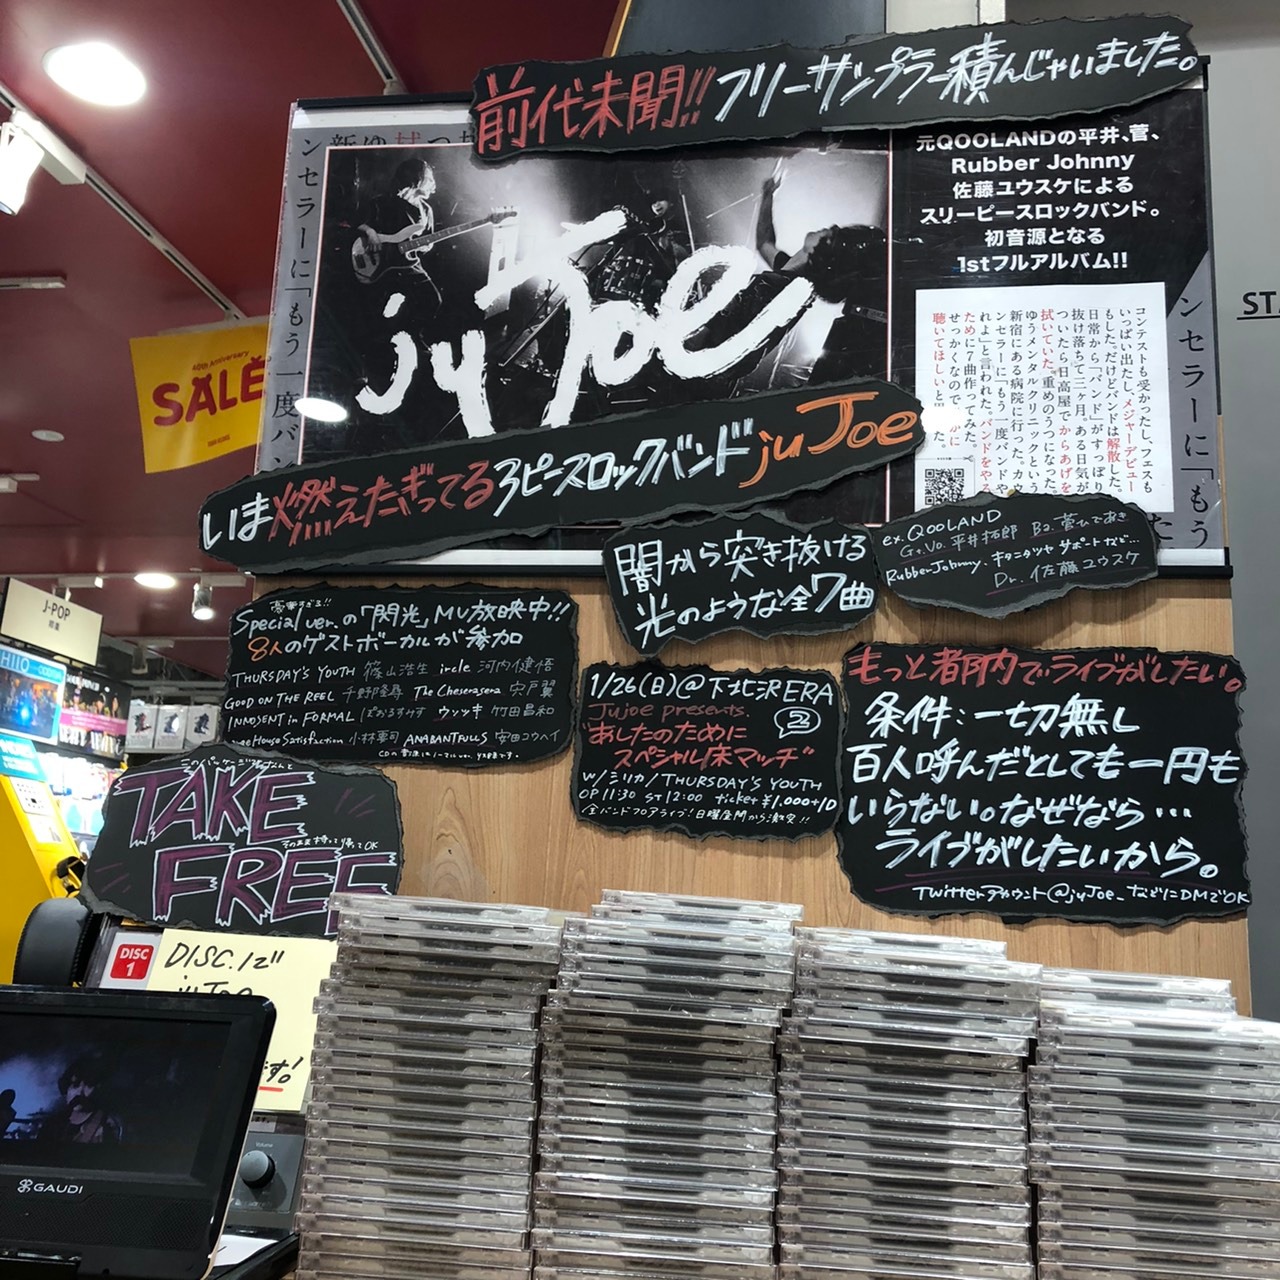 前代未聞!! フリーサンプラー積んじゃいました。
元QOOLANDの平井、菅、
Rubber Johnny
佐藤ユウスケによる
スリーピースロックバンド。
初音源となる
1stフルアルバム!!
juJoe
コンテストも受かったし、フェスも
いっぱい出たし、メジャーデビュー
もした。だけどバンドは解散した。
日常から「バンド」がすっぽり
抜け落ちて三ヶ月。ある日気が
ついたら、日高屋でからあげを
拭いていた。重めのうつになった。
ゆうメンタルクリニックという
新宿にある病院に行った。カウ
ンセラーに「もう一度バンドや
れよ」と言われた。バンドをやる
ために7曲作ってみた。
せっかくなので
聴いてほしいと
ンセラーに「もう一度バン
ンセラーに「もう
SALE
ST
J-POP
いま燃えたぎってる3ピースロックバンド juJoe
闇から突き抜ける
光のような全7曲
ex. QOOLAND
Gt.Vo. 平井拓郎 Ba. 菅ひであき
RubberJohnny、キタニタツヤ サポートなど…
Dr. 佐藤ユウスケ
豪華すぎる!!
Special ver.の「閃光」MV放映中!!
8人のゲストボーカルが参加
THURSDAY'S YOUTH 篠山浩生 ircle 河内健悟
GOOD ON THE REEL 千野隆尋 The Cheserasera 宍戸翼
INNOSENT in FORMAL ぽおるすみす ウソツキ 竹田昌和
House Satisfaction 小林 ANABANTFULLS 安田コウヘイ
1/26(日)@下北沢ERA
Jujoe presents.
"あしたのために2
スペシャル床マッチ"
w/シリカ/THURSDAY'S YOUTH
OP 11:30 ST 12:00 ticket ¥1,000+1D
全バンドフロアライブ!日曜昼間から激突!!
もっと都内でライブがしたい。
条件:一切無し
百人呼んだとしても一円も
いらない。なぜなら…
ライブがしたいから。
Twitterアカウント@juJoe_などにDMでOK
TAKE
FREE
そのまま持って帰ってOK
DISC
1
DISC.1で
juJoe
す!
GAUDI
Volume